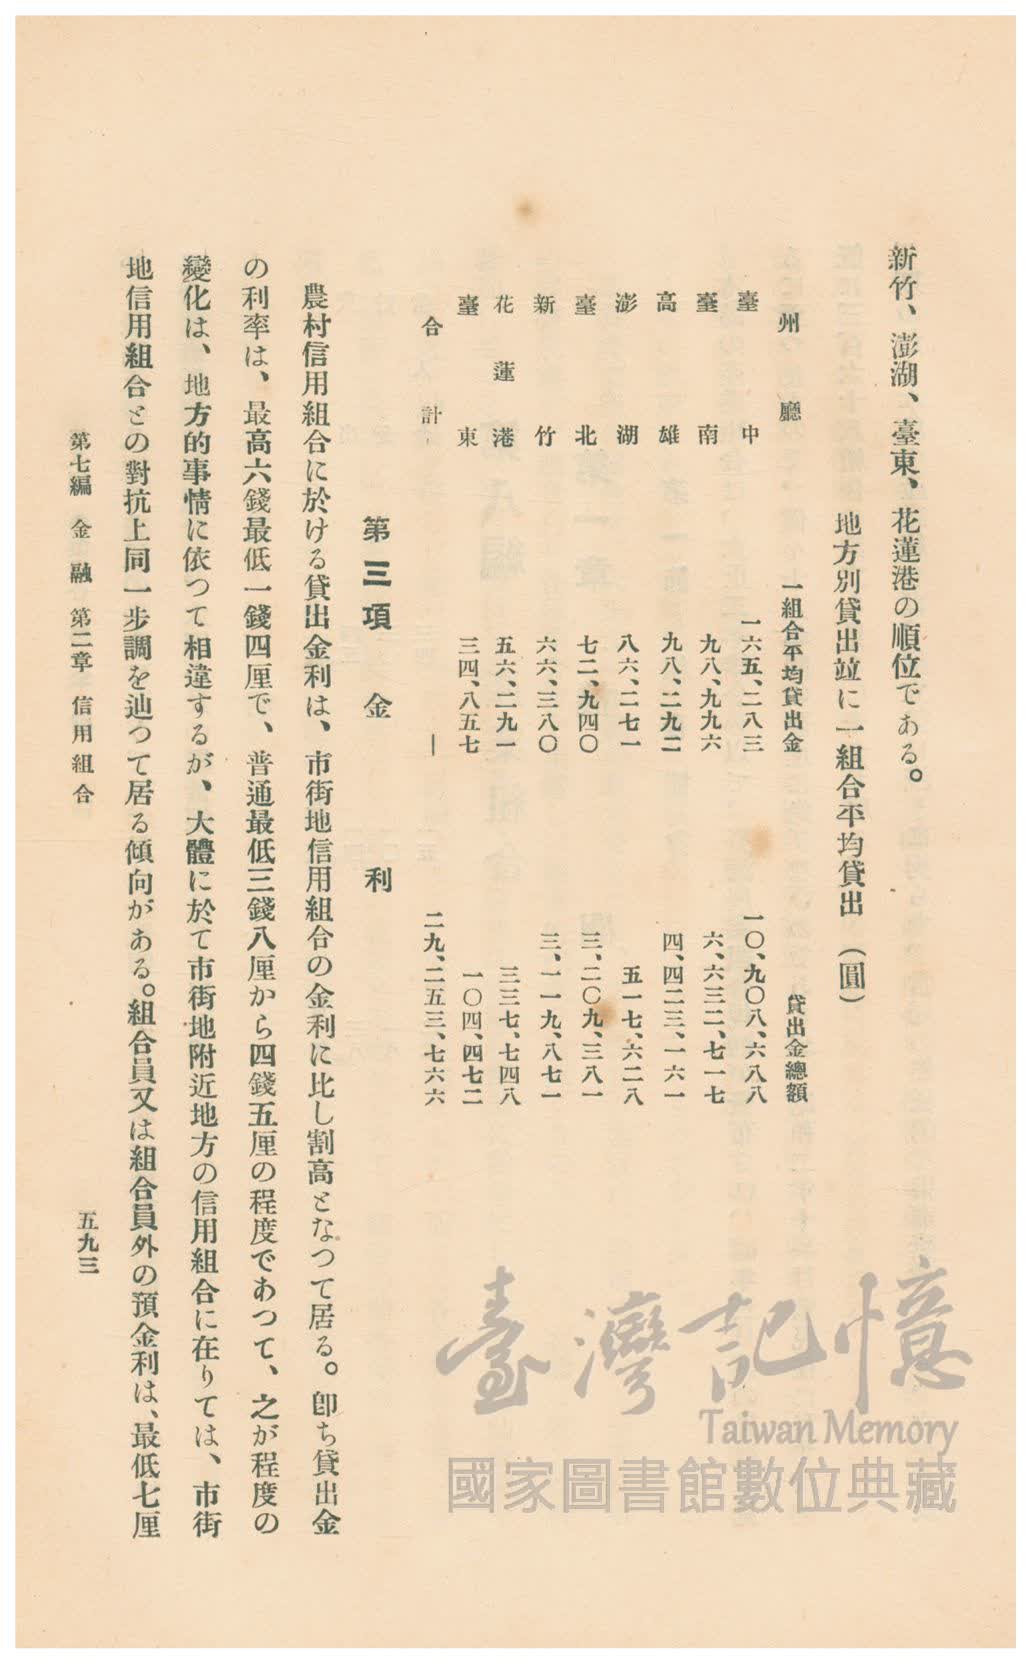 新竹、澎湖、臺東、花蓮港の順位である。
地方別貸出竝に一組合平均貸出(圓)
州廳 一組合平均貸出金 貸出金總額
臺中 一六五、二八三 一〇、九〇八、六八八
臺南 九八、九九六 六、六三二、七一七
高雄 九八、二九二 四、四二三、一六一
澎湖 八六、二七一 五一七、六二八
臺北 七二、九四〇 三、二〇九、三八一
新竹 六六、三八〇 三、一一九、八七一
花蓮港 五六、二九一 三三七、七四八
臺東 三四、八五七 一〇四、四七二
合計 ― 二九、二五三、七六六
第三項 金利
農村信用組合に於ける貸出金利は、市街地信用組合の金利に比し割高となつて居る。卽ち貸出金
の利率は、最高六錢最低一錢四厘で、普通最低三錢八厘から四錢五厘の程度であつて、之が程度の
變化は、地方的事情に依つて相違するが、大體に於て市街地附近地方の信用組合に在りては、市街
地信用組合との對抗上同一步調を辿つて居る傾向がある。組合員又は組合員外の預金利は、最低七厘
第七編 金融 第二章 信用組合
五九三
臺灣記憶
Taiwan Memory
國家圖書館數位典藏